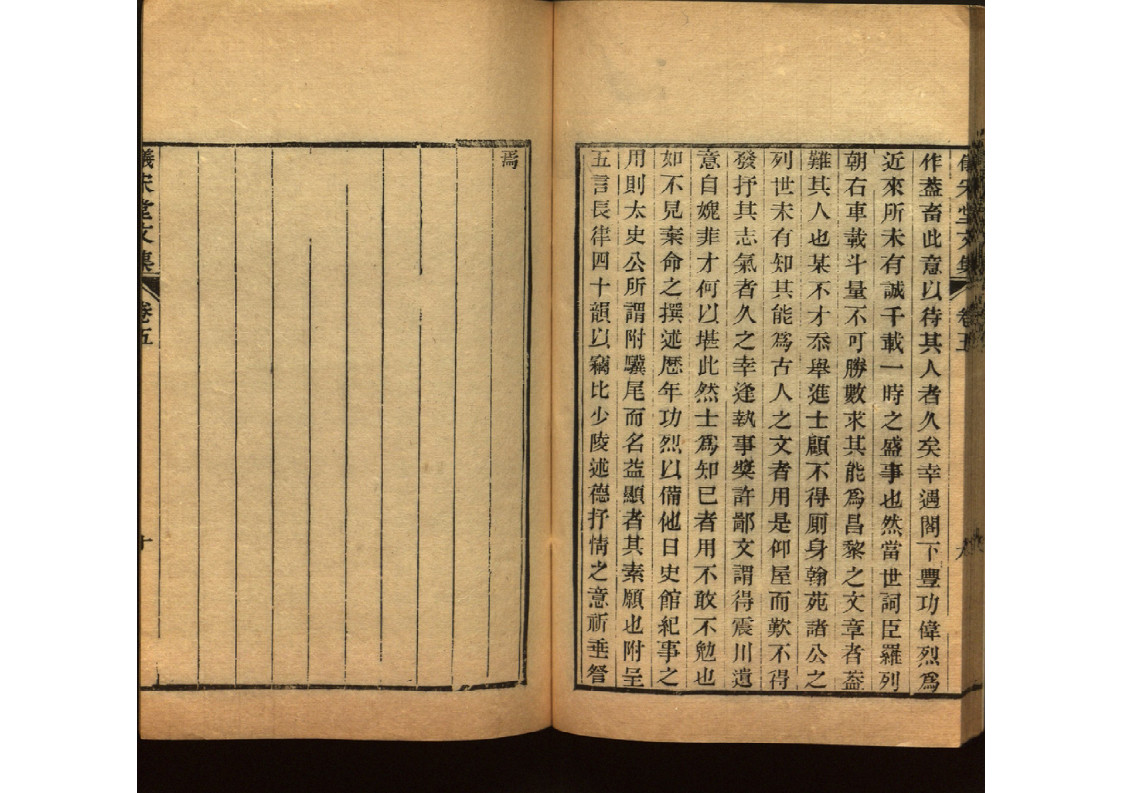 作葢畜此意以待其人者久矣幸遇閣下豐功偉烈爲
近來所未有誠千載一時之盛事也然當世詞臣羅列
朝右車載斗量不可勝數求其能爲昌黎之文章者葢
難其人也某不才忝舉進士顧不得厠身翰苑諸公之
列世未有知其能爲古人之文者用是仰屋而歎不得
發抒其志氣者久之幸逢執事獎許鄙文謂得震川遺
意自媿菲才何以堪此然士爲知已者用不敢不勉也
如不見棄命之撰述歷年功烈以備他日史館紀事之
用則太史公所謂附驥尾而名益顯者其素願也附呈
五言長律四十韻以竊比少陵述德抒情之意祈垂詧
焉
儀宋堂文集
卷五
十